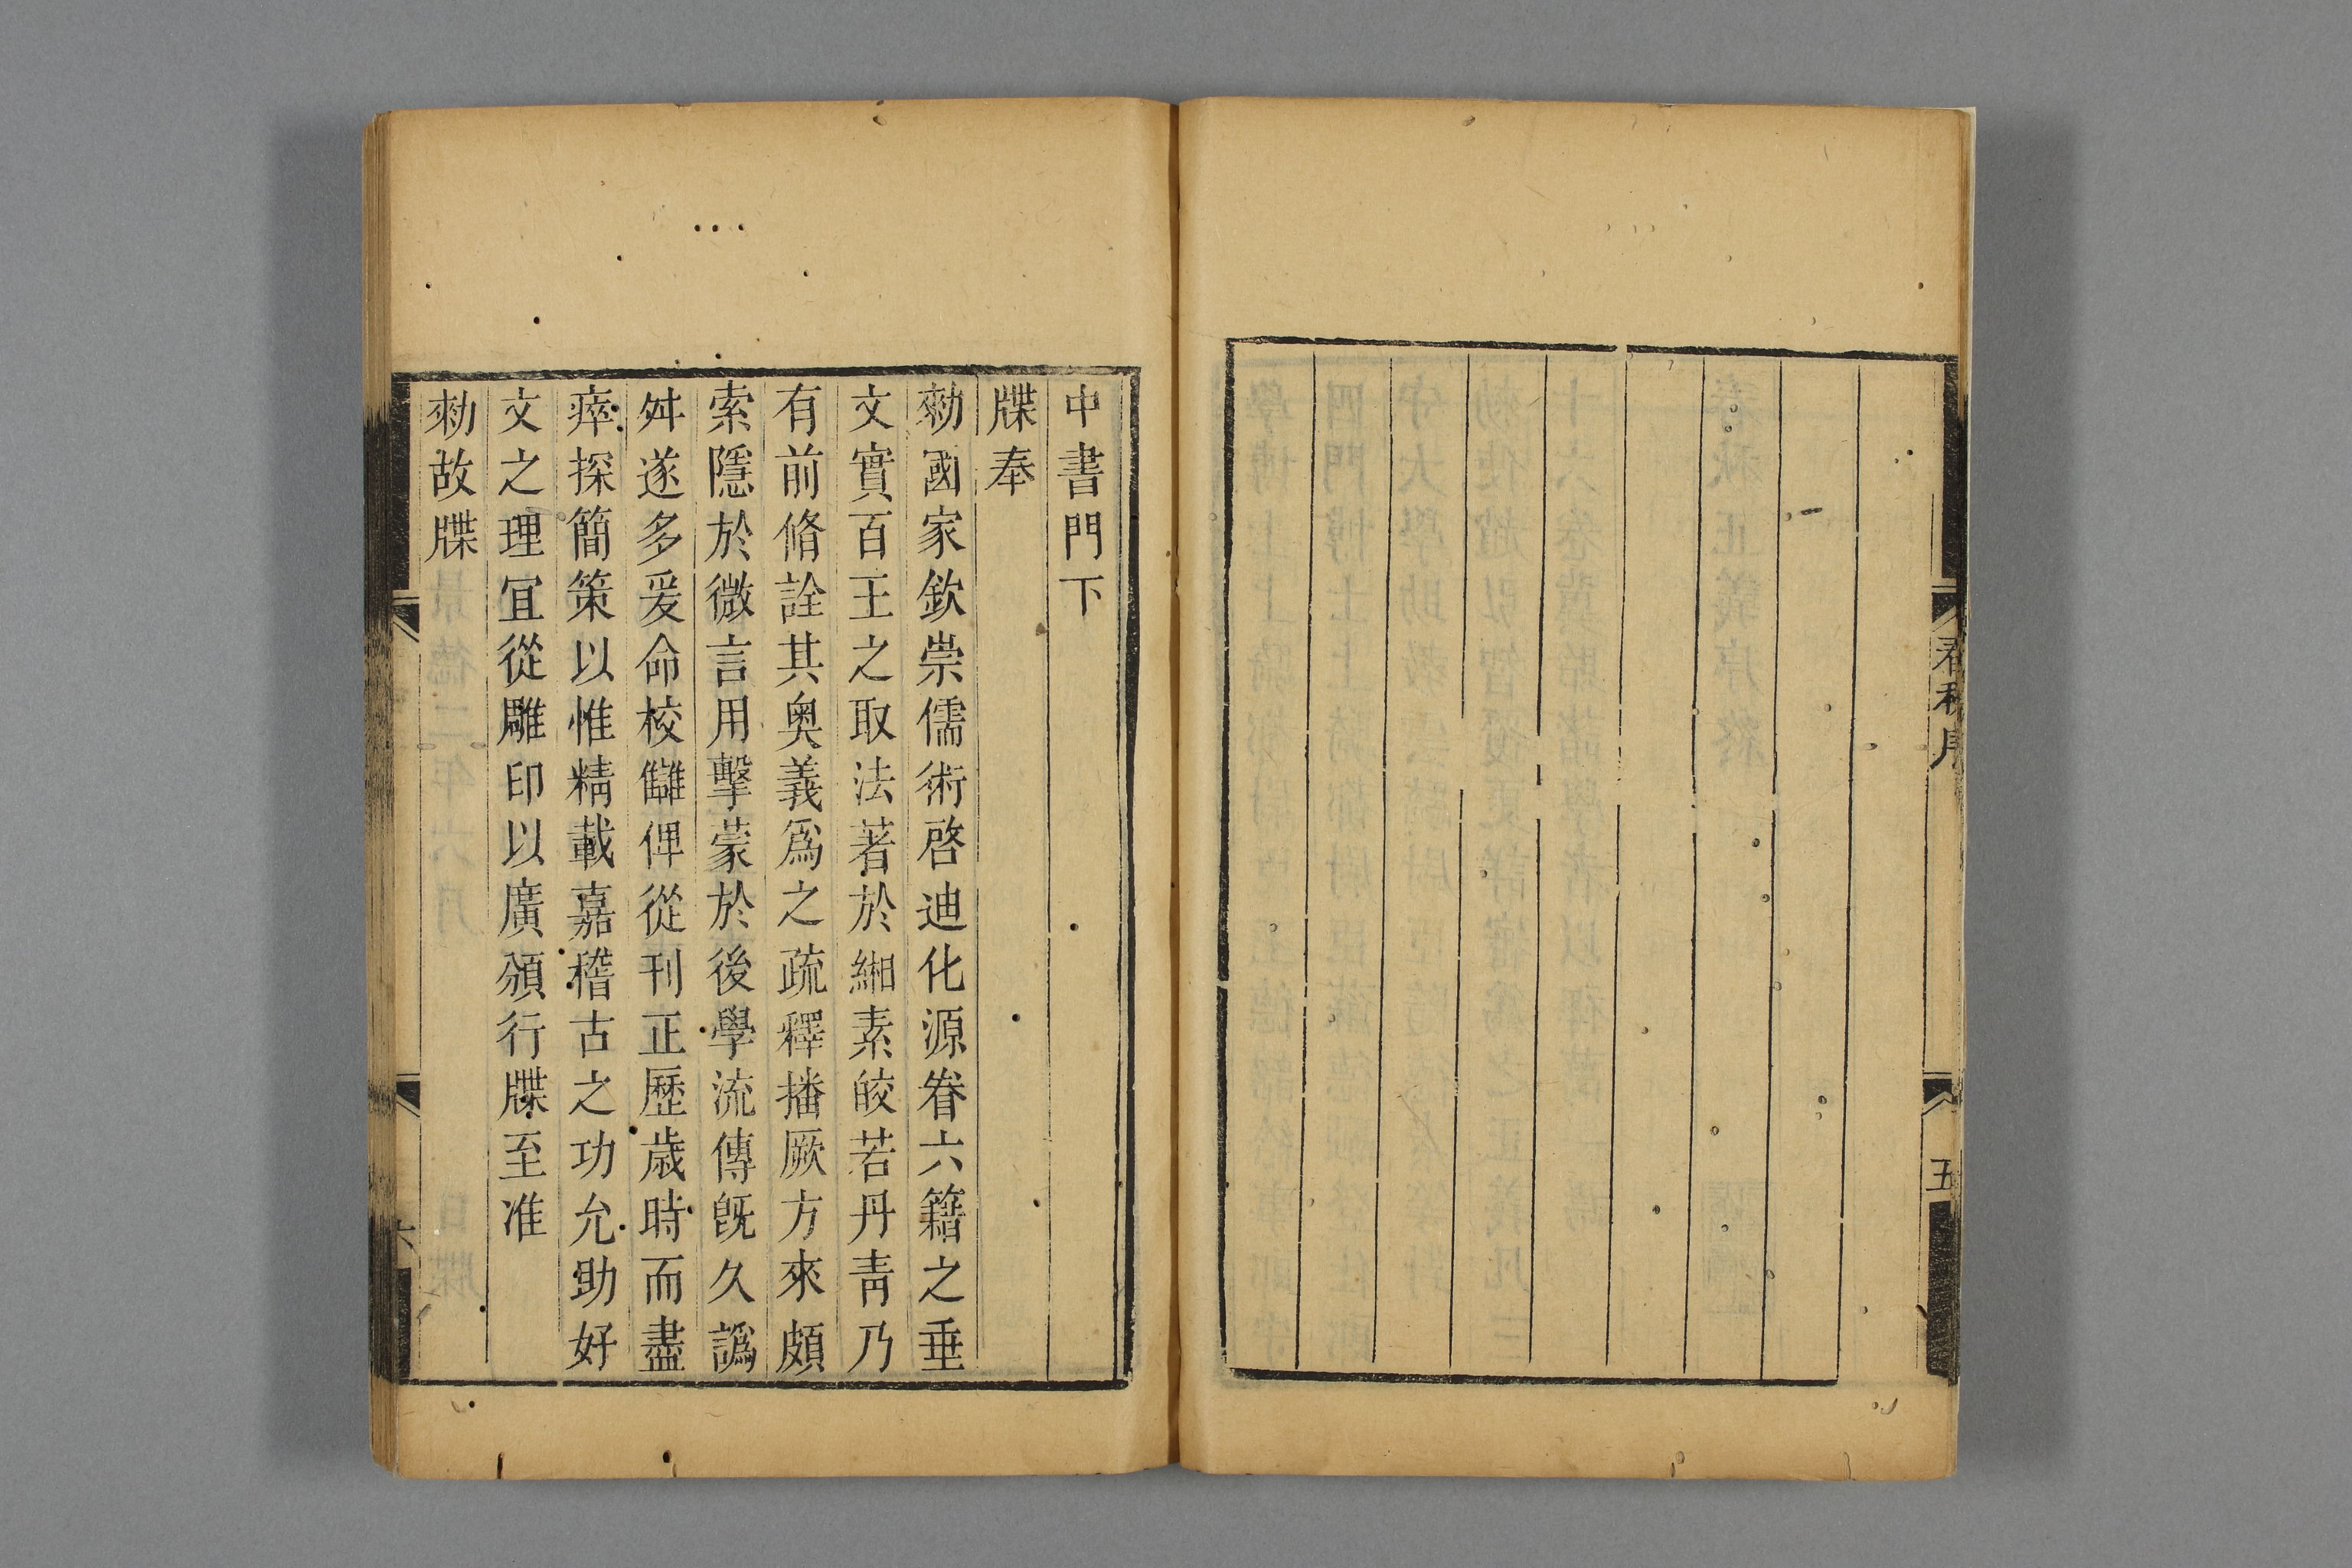 春秋序
五
中書門下
牒奉
勑國家欽崇儒術啓迪化源眷六籍之垂
文實百王之取法著於緗素皎若丹靑乃
有前脩詮其奥義爲之疏釋播厥方來頗
索隱於微言用擊蒙於後學流傳旣久譌
舛遂多爰命校讎俾從刊正歷歲時而盡
瘁探簡策以惟精載嘉稽古之功允助好
文之理宜從雕印以廣頒行牒至准
勑故牒
六